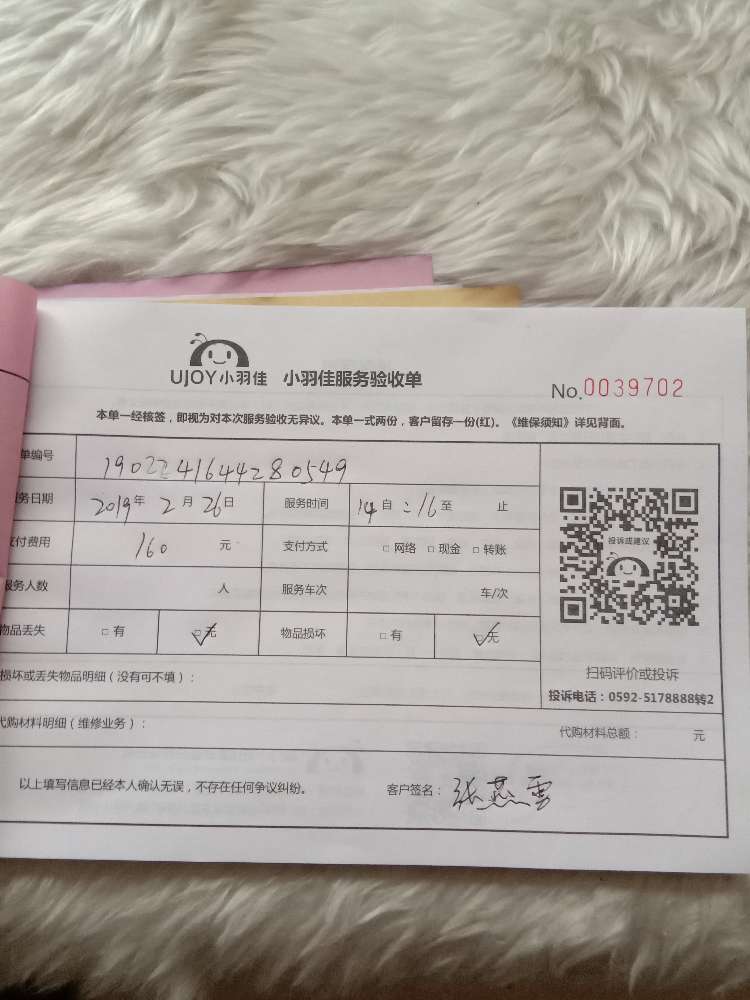 UJOY小羽佳 小羽佳服务验收单
No.0039702
本单一经核签，即视为对本次服务验收无异议。本单一式两份，客户留存一份(红)。《维保须知》详见背面。
单编号 1902241644280549
务日期 2019年 2月 26日 服务时间 14自:16至 止
付费用 160 元 支付方式 □网络 □现金 □转账
投诉或建议
服务人数 人 服务车次 车/次
物品丢失 □有 ☑无 物品损坏 □有 ☑无
损坏或丢失物品明细（没有可不填）：
扫码评价或投诉
投诉电话：0592-5178888转2
代购材料明细（维修业务）： 代购材料总额： 元
以上填写信息已经本人确认无误，不存在任何争议纠纷。 客户签名：张燕雪